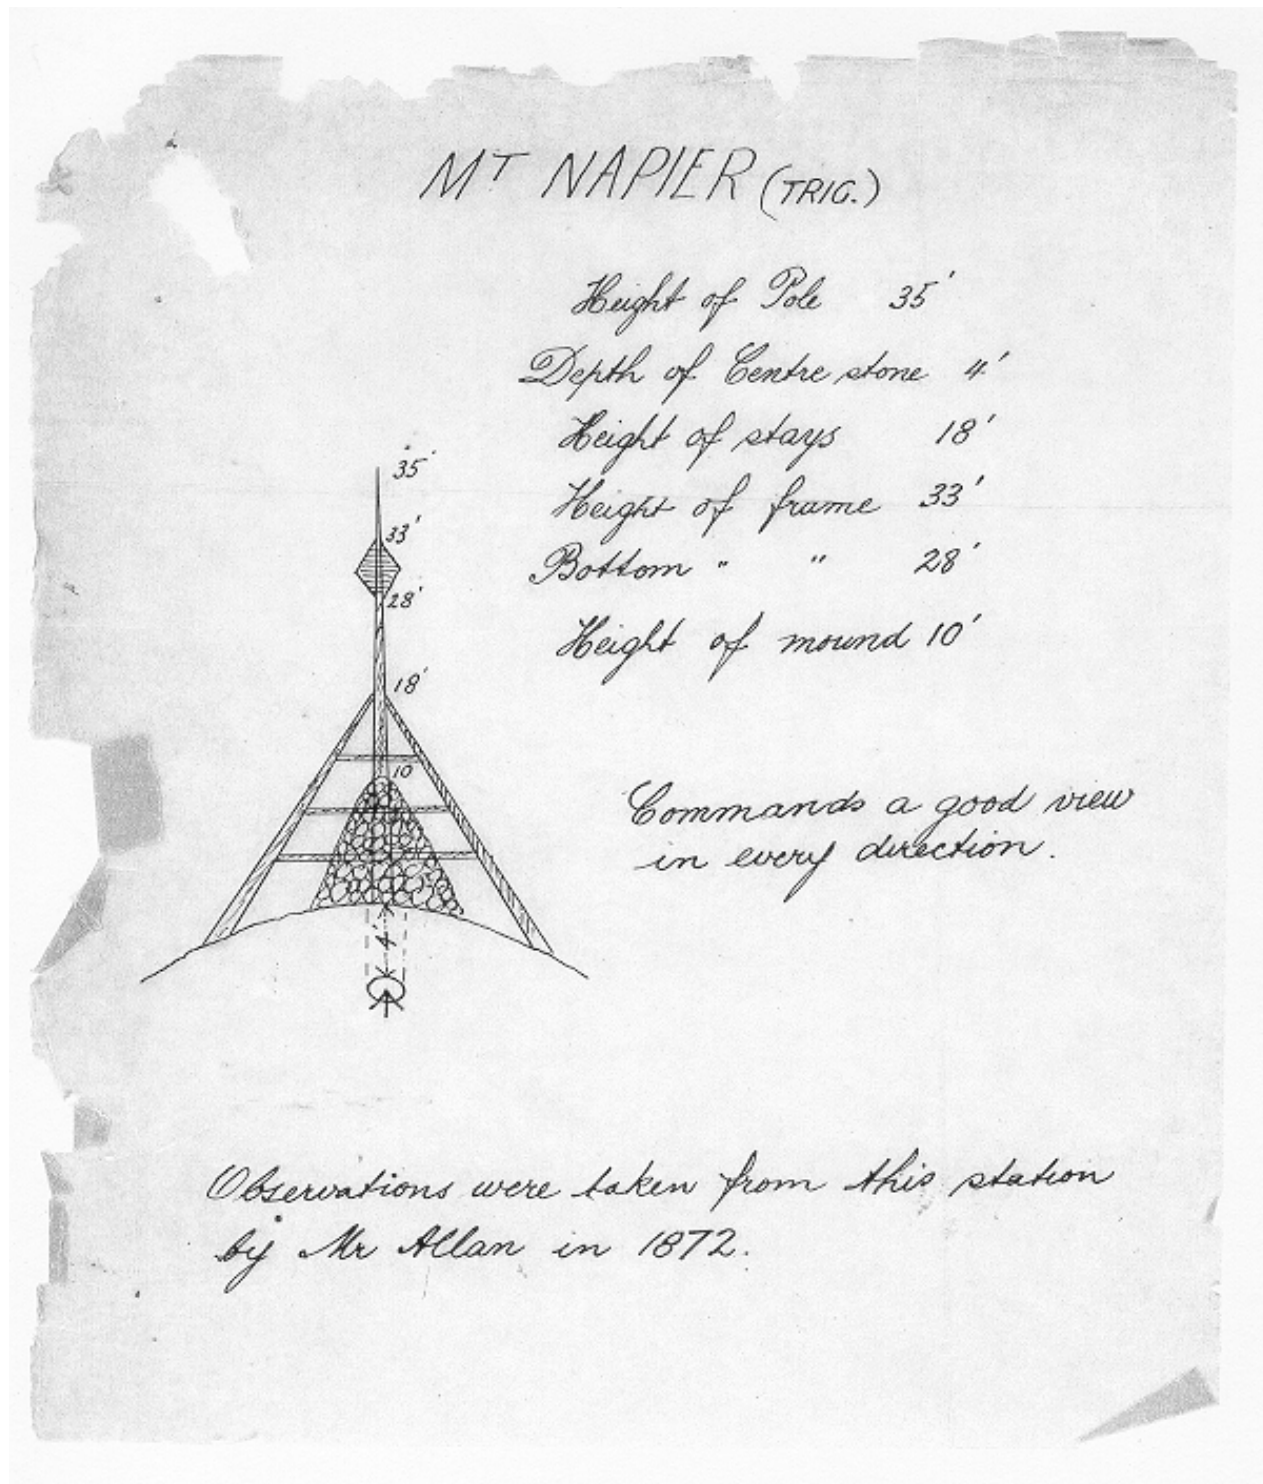 MT NAPIER (TRIG.)
Height of Pole 35'
Depth of Centre stone 4'
Height of stays 18'
Height of frame 33'
Bottom " " 28'
Height of mound 10'
35'
33'
28'
18'
10
4'
Commands a good view
in every direction.
Observations were taken from this station
by Mr Allan in 1872.